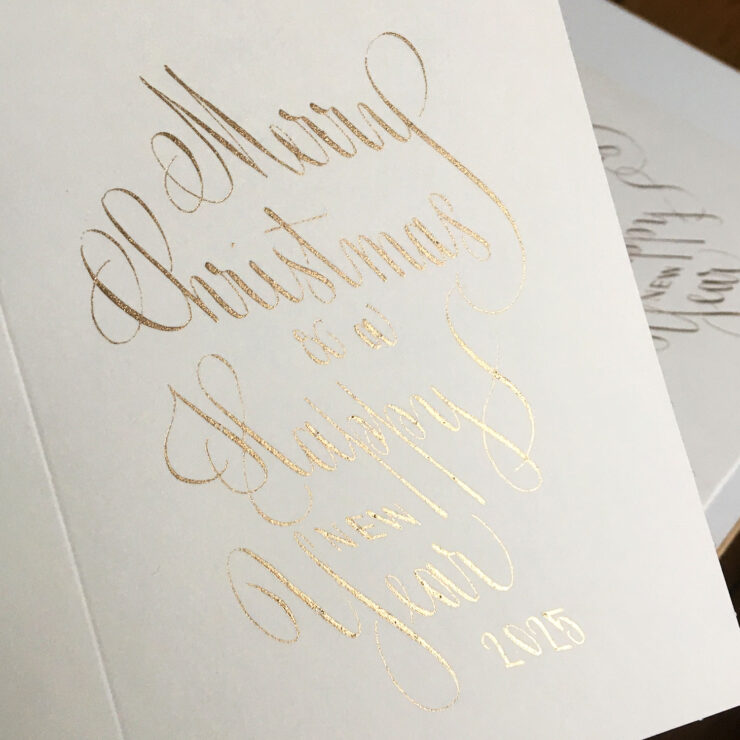 Merry
Christmas
& a
Happy
NEW
Year
2025
Happy
NEW
Year